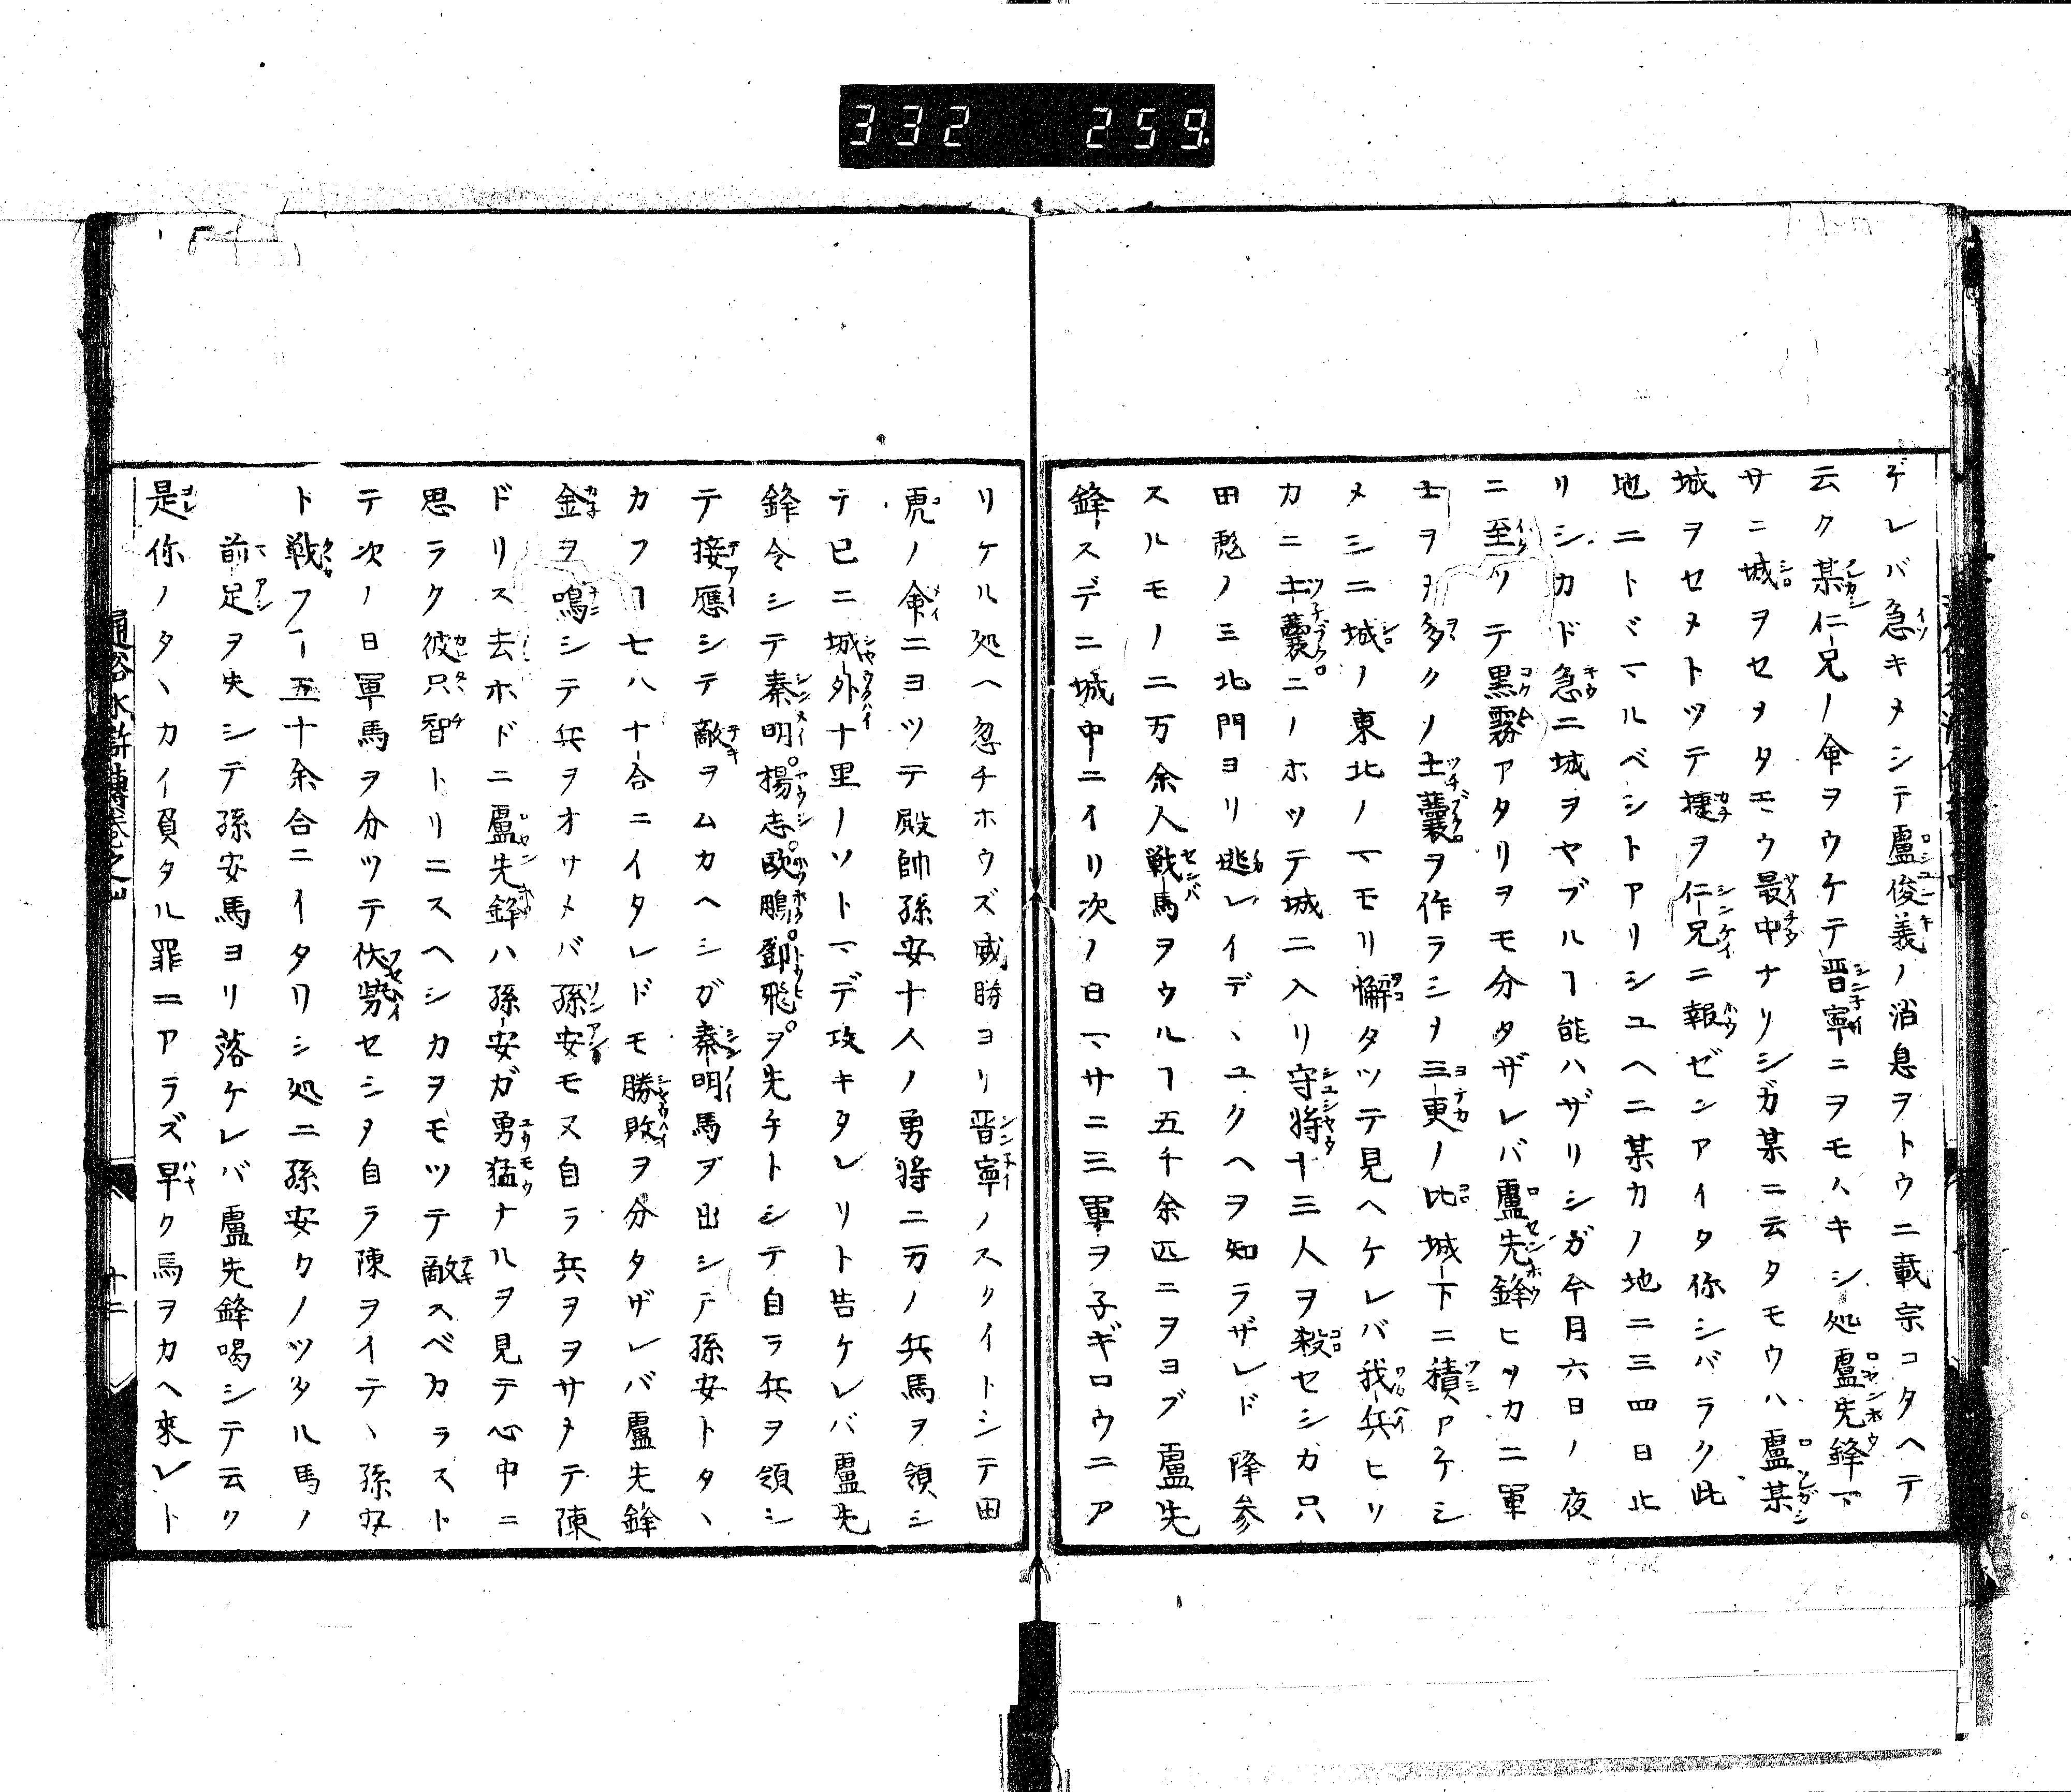 332 259.
デレバ急キメシテ盧俊義ノ消息ヲトウニ載宗コタヘテ
云ク某仁兄ノ命ヲウケテ晋寧ニヲモムキシ処盧先鋒マ
サニ城ヲセメタモウ最中ナリシガ某ニ云タモウハ盧某
城ヲセメトツテ捷ヲ仁兄ニ報ゼンアイタ你シバラク此
地ニトヾマルベシトアリシユヘニ某カノ地ニ三四日止
リシカド急ニ城ヲヤブルヿ能ハザリシガ今月六日ノ夜
ニ至ツテ黒霧アタリヲモ分タザレバ盧先鋒ヒソカニ軍
士ヲ多クノ土囊ヲ作ラシメ三更ノ比城下ニ積アケシ
メシニ城ノ東北ノマモリ懈タツテ見ヘケレバ我兵ヒソ
カニ土囊ニノホツテ城ニ入リ守將十三人ヲ殺セシカ只
田彪ノミ北門ヨリ逃レイデヽユクヘヲ知ラザレド降参
スルモノ二万余人戦馬ヲウルヿ五千余匹ニヲヨブ盧先
鋒スデニ城中ニイリ次ノ日マサニ三軍ヲ子ギロウニア
リケル処ヘ忽チホウズ威勝ヨリ晋寧ノスクイトシテ田
虎ノ命ニヨツテ殿帥孫安十人ノ勇將ニ万ノ兵馬ヲ領シ
テ已ニ城外十里ノソトマデ攻キタレリト告ケレバ盧先
鋒令シテ秦明。揚志。歐鵬。鄧飛。ヲ先手トシテ自ラ兵ヲ領シ
テ接應シテ敵ヲムカヘシガ秦明馬ヲ出シテ孫安トタヽ
カフヿ七八十合ニイタレドモ勝敗ヲ分タザレバ盧先鋒
金ヲ鳴シテ兵ヲオサメバ孫安モ又自ラ兵ヲヲサメテ陳
ドリス去ホドニ盧先鋒ハ孫安ガ勇猛ナルヲ見テ心中ニ
思ラク彼只智トリニスヘシカヲモツテ敵スベカラスト
テ次ノ日軍馬ヲ分ツテ伏勢セシメ自ラ陳ヲイテヽ孫安
ト戦フヿ五十余合ニイタリシ処ニ孫安カノツタル馬ノ
前足ヲ失シテ孫安馬ヨリ落ケレバ盧先鋒喝シテ云ク
是你ノタヽカイ負タル罪ニアラズ早ク馬ヲカヘ來レト
通俗水滸傳卷之
十二